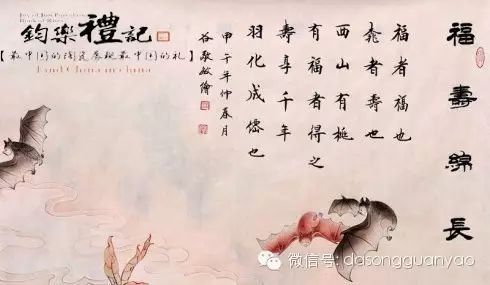 Joy of Jun Porcelain
Book of Rites
鈞樂禮記
【最中国的陶瓷展现最中国的礼】
Find China in china
福壽綿長
福者福也
者壽也
西山有
有福者得之
壽享千年
羽化成僊也
甲午年仲春月
谷敬敏繪
微信号: dasongguanyao